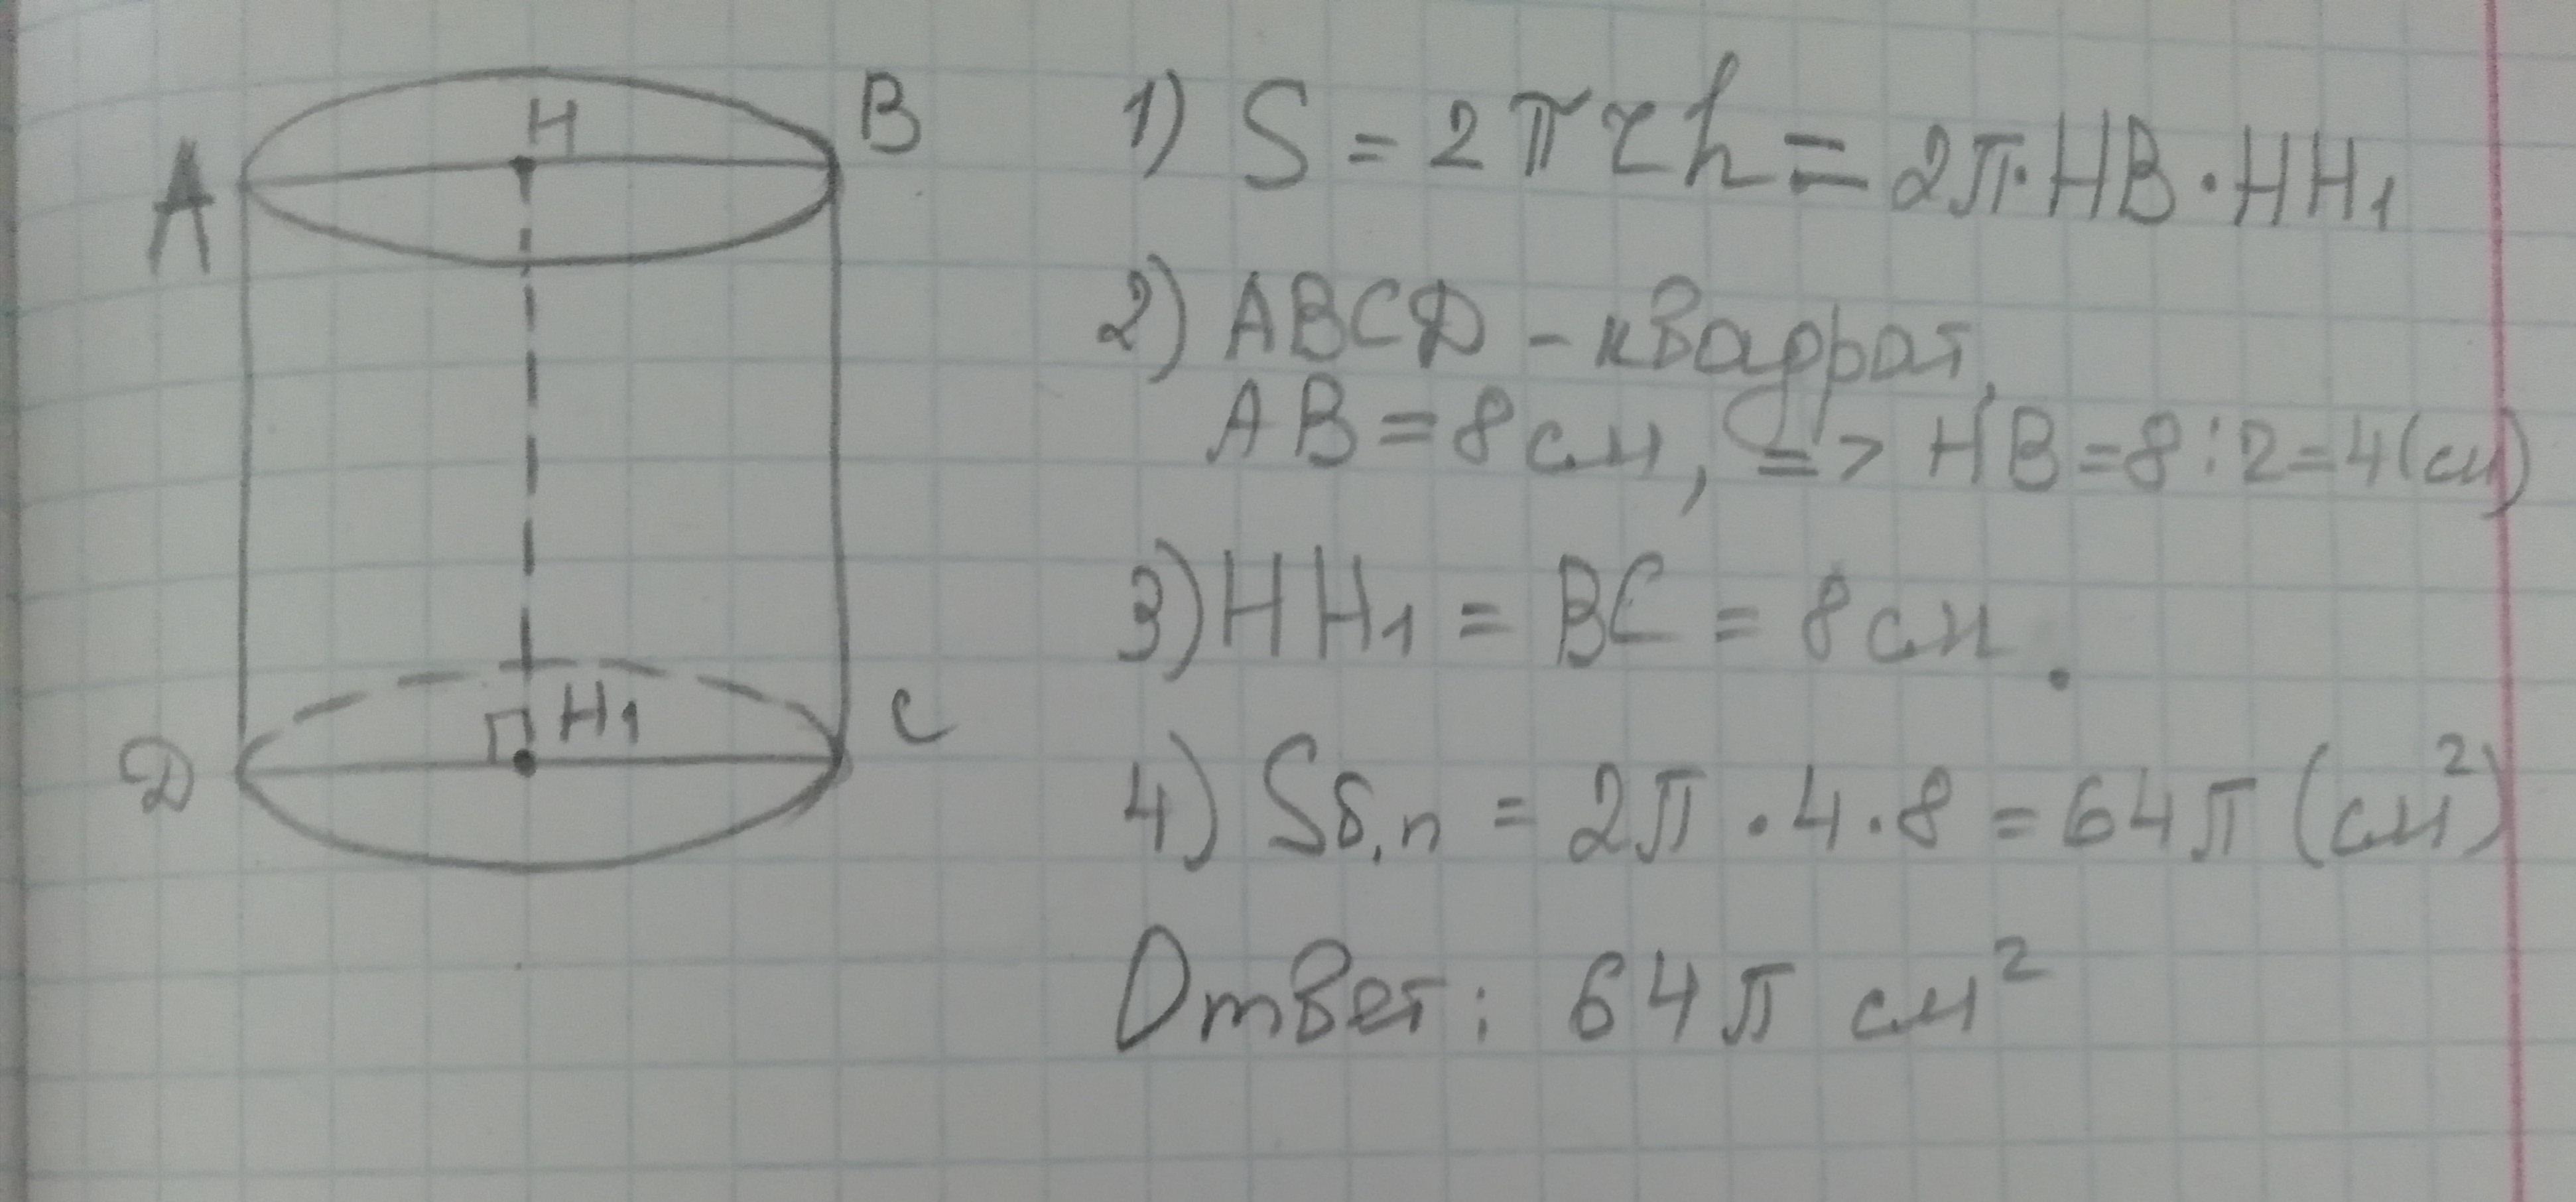 A
H
B
D
H₁
C
1) S = 2πrh = 2π·HB·HH₁
2) ABCD - квадрат,
AB = 8 см, => HB = 8:2 = 4(см)
3) HH₁ = BC = 8 см.
4) Sб.п = 2π·4·8 = 64π (см²)
Ответ: 64π см²